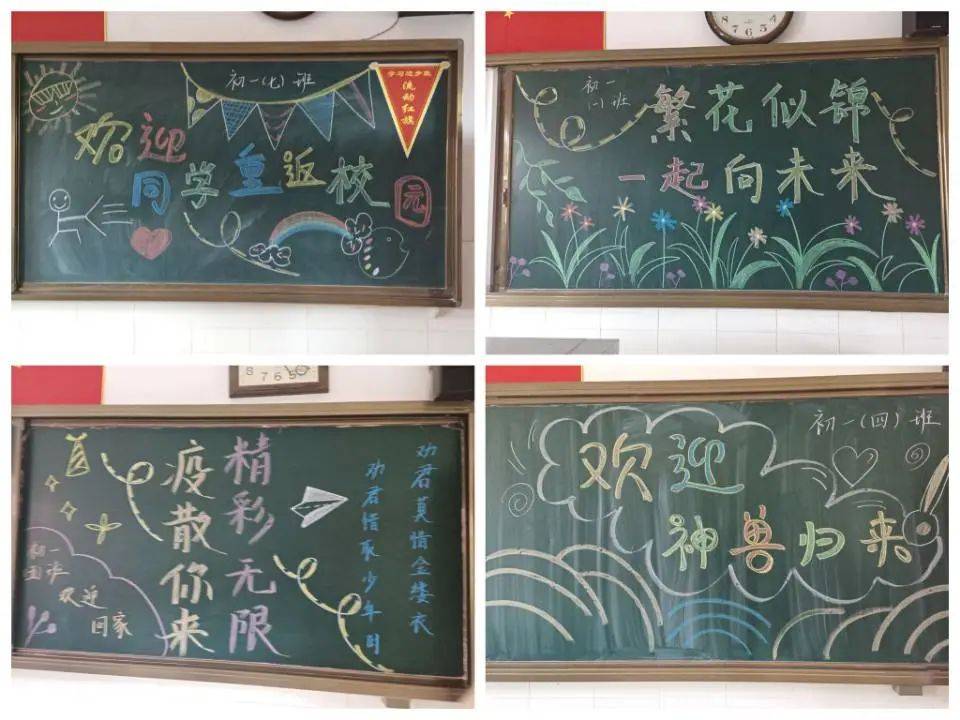 初一(七)班
学习进步班
流动红旗
欢迎
同学重返校园
8 7 6 5
初一
(一)班
繁花似锦
一起向未来
8 7 6 5
劝君莫惜金缕衣
劝君惜取少年时
精彩无限
疫散你来
初一
五班
欢迎
回家
初一(四)班
欢迎
神兽归来